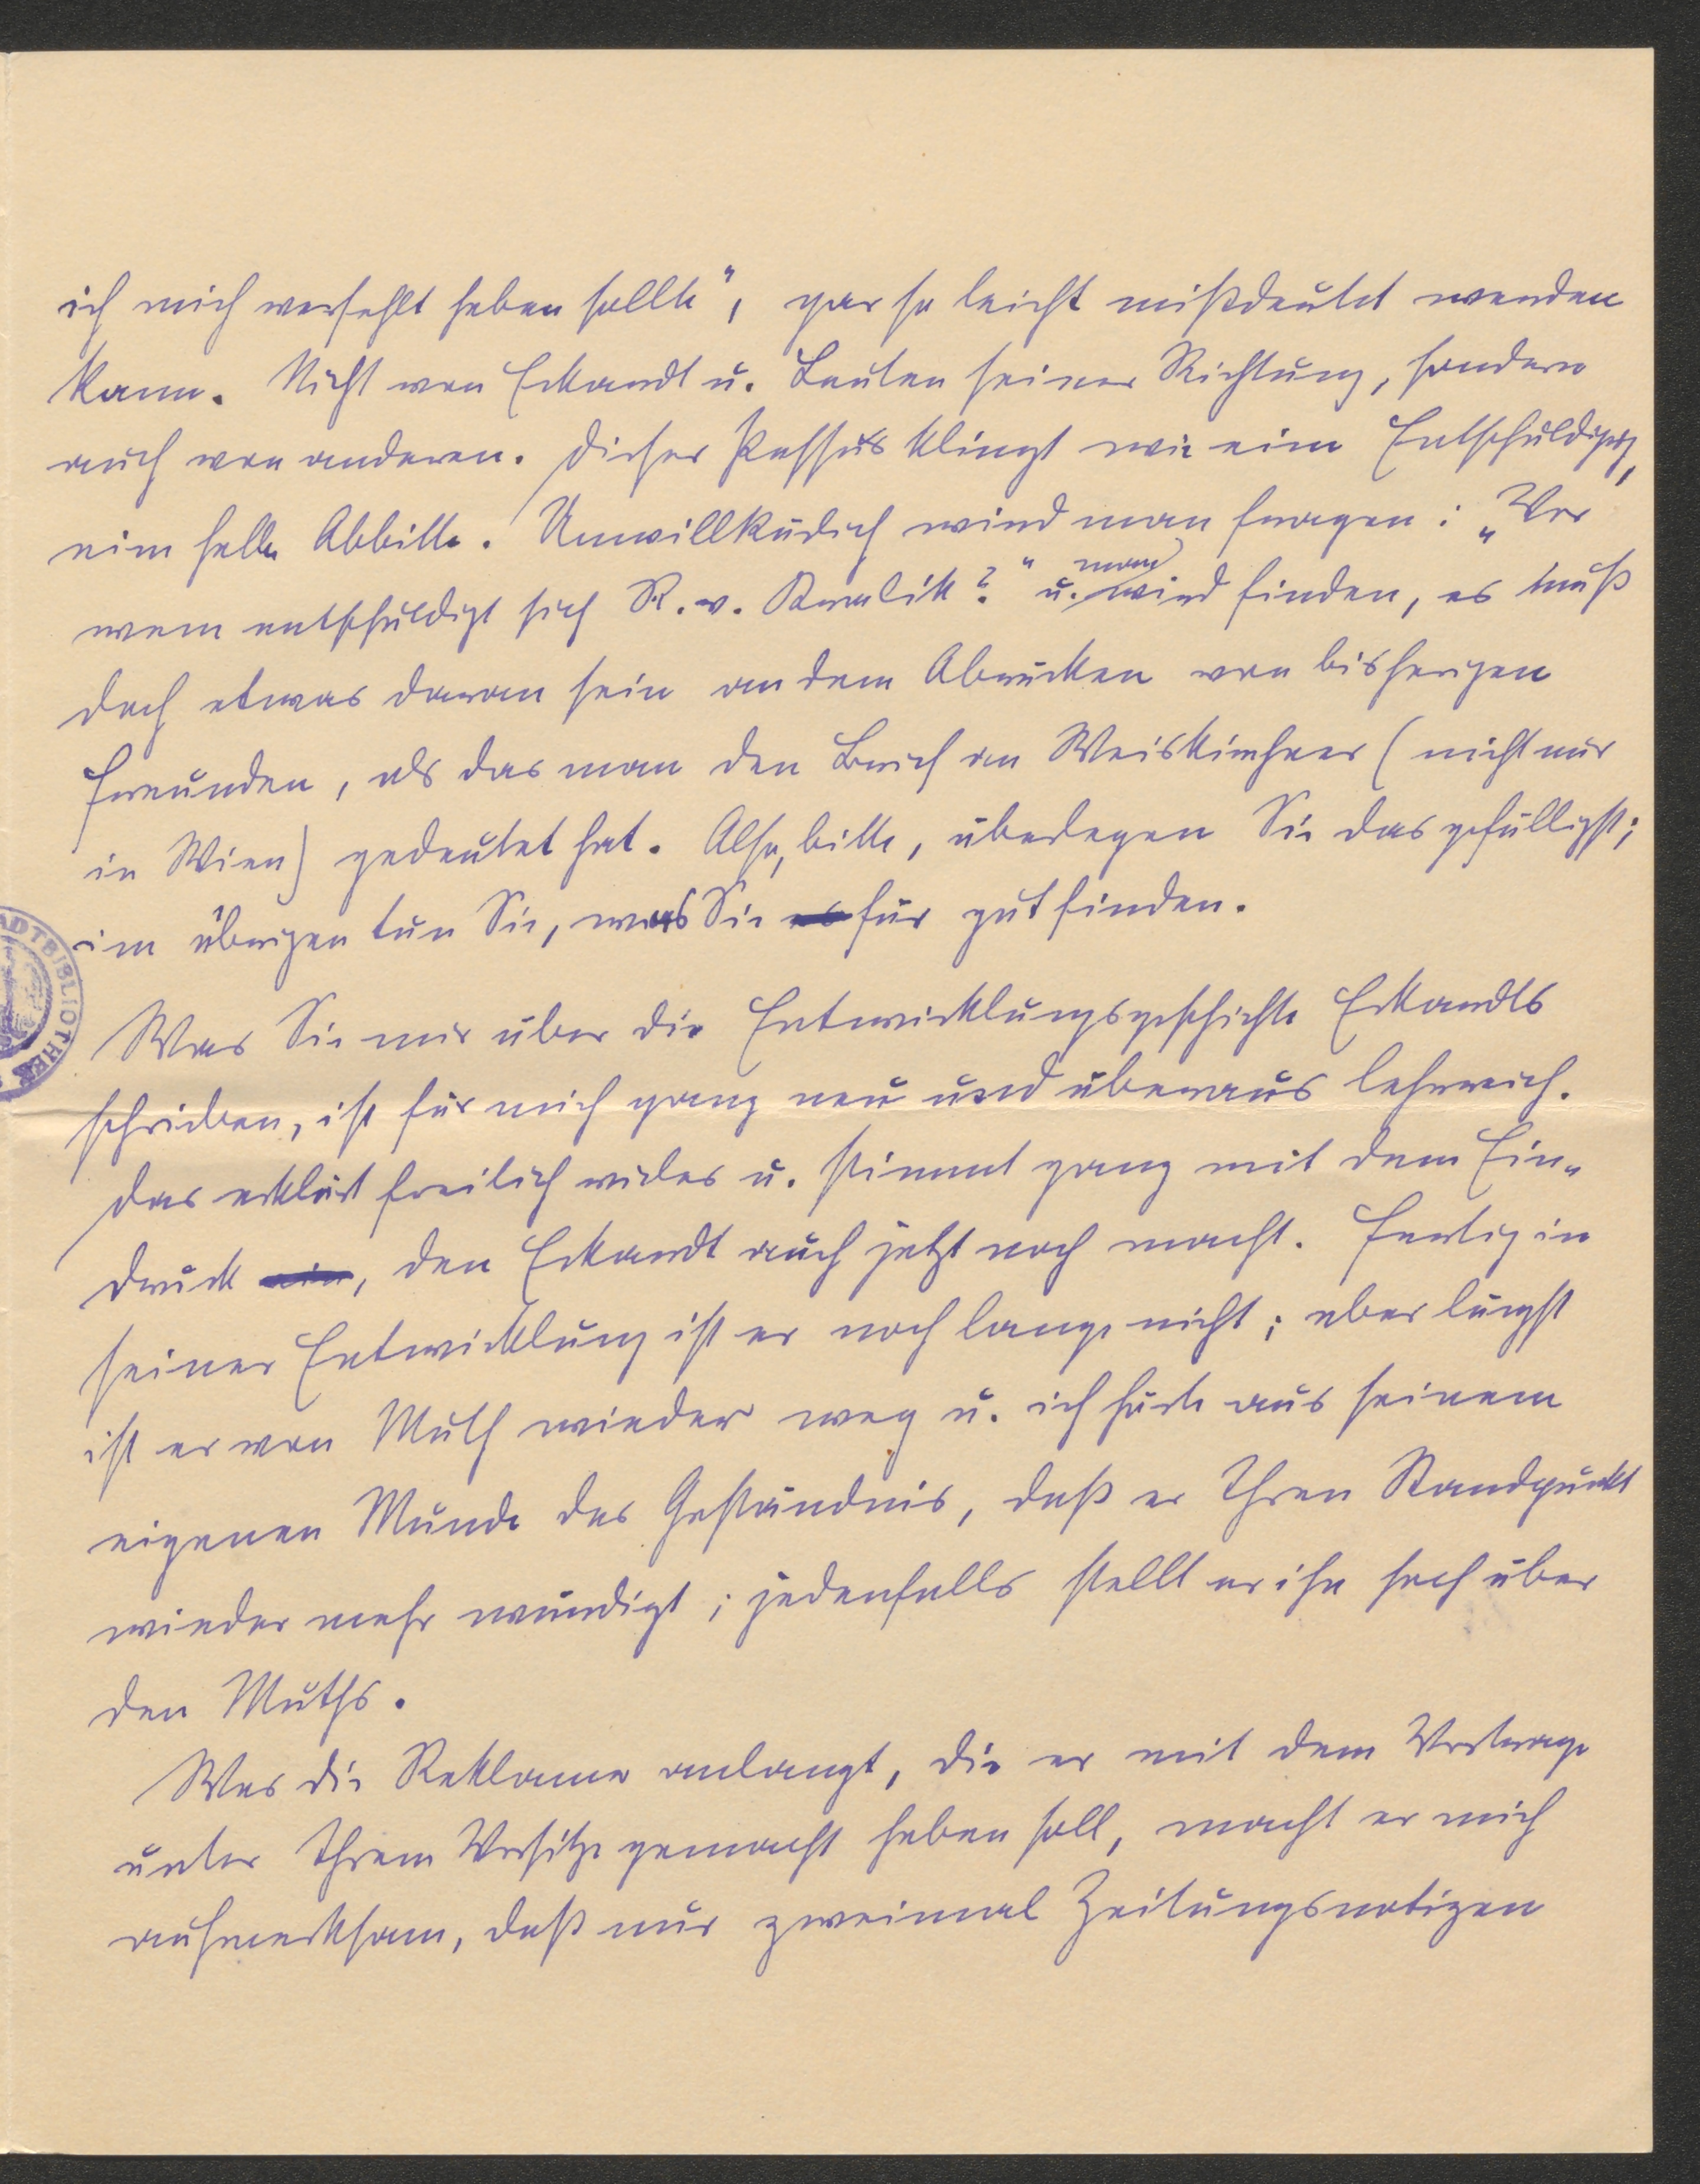 ich mich verfehlt haben sollte", gar so leicht mißdeutet werden
kann. Nicht von Eckardt u. Leuten seiner Richtung, sondern
auch von anderen. Dieser Passus klingt wie eine Entschuldigung,
eine halbe Abbitte. Unwillkürlich wird man fragen: „Vor
wem entschuldigt sich R. v. Kralik?" u. man wird finden, es muß
doch etwas daran sein an dem Abrücken von bisherigen
Freunden, als das man den Brief an Weiskirchner (nicht nur
in Wien) gedeutet hat. Also, bitte, überlegen Sie das gefälligst;
im übrigen tun Sie, was Sie für gut finden.
Was Sie mir über die Entwicklungsgeschichte Eckardts
schrieben, ist für mich ganz neu und überaus lehrreich.
Das erklärt freilich vieles u. stimmt ganz mit dem Ein-
druck, den Eckardt auch jetzt noch macht. Fertig in
seiner Entwicklung ist er noch lange nicht; aber längst
ist er von Muth wieder weg u. ich hörte aus seinem
eigenen Munde das Geständnis, daß er Ihren Standpunkt
wieder mehr würdigt; jedenfalls stellt er ihn hoch über
den Muths.
Was die Reklame anlangt, die er mit dem Vortrage
unter Ihrem Vorsitze gemacht haben soll, macht er mich
aufmerksam, daß nur zweimal Zeitungsnotizen